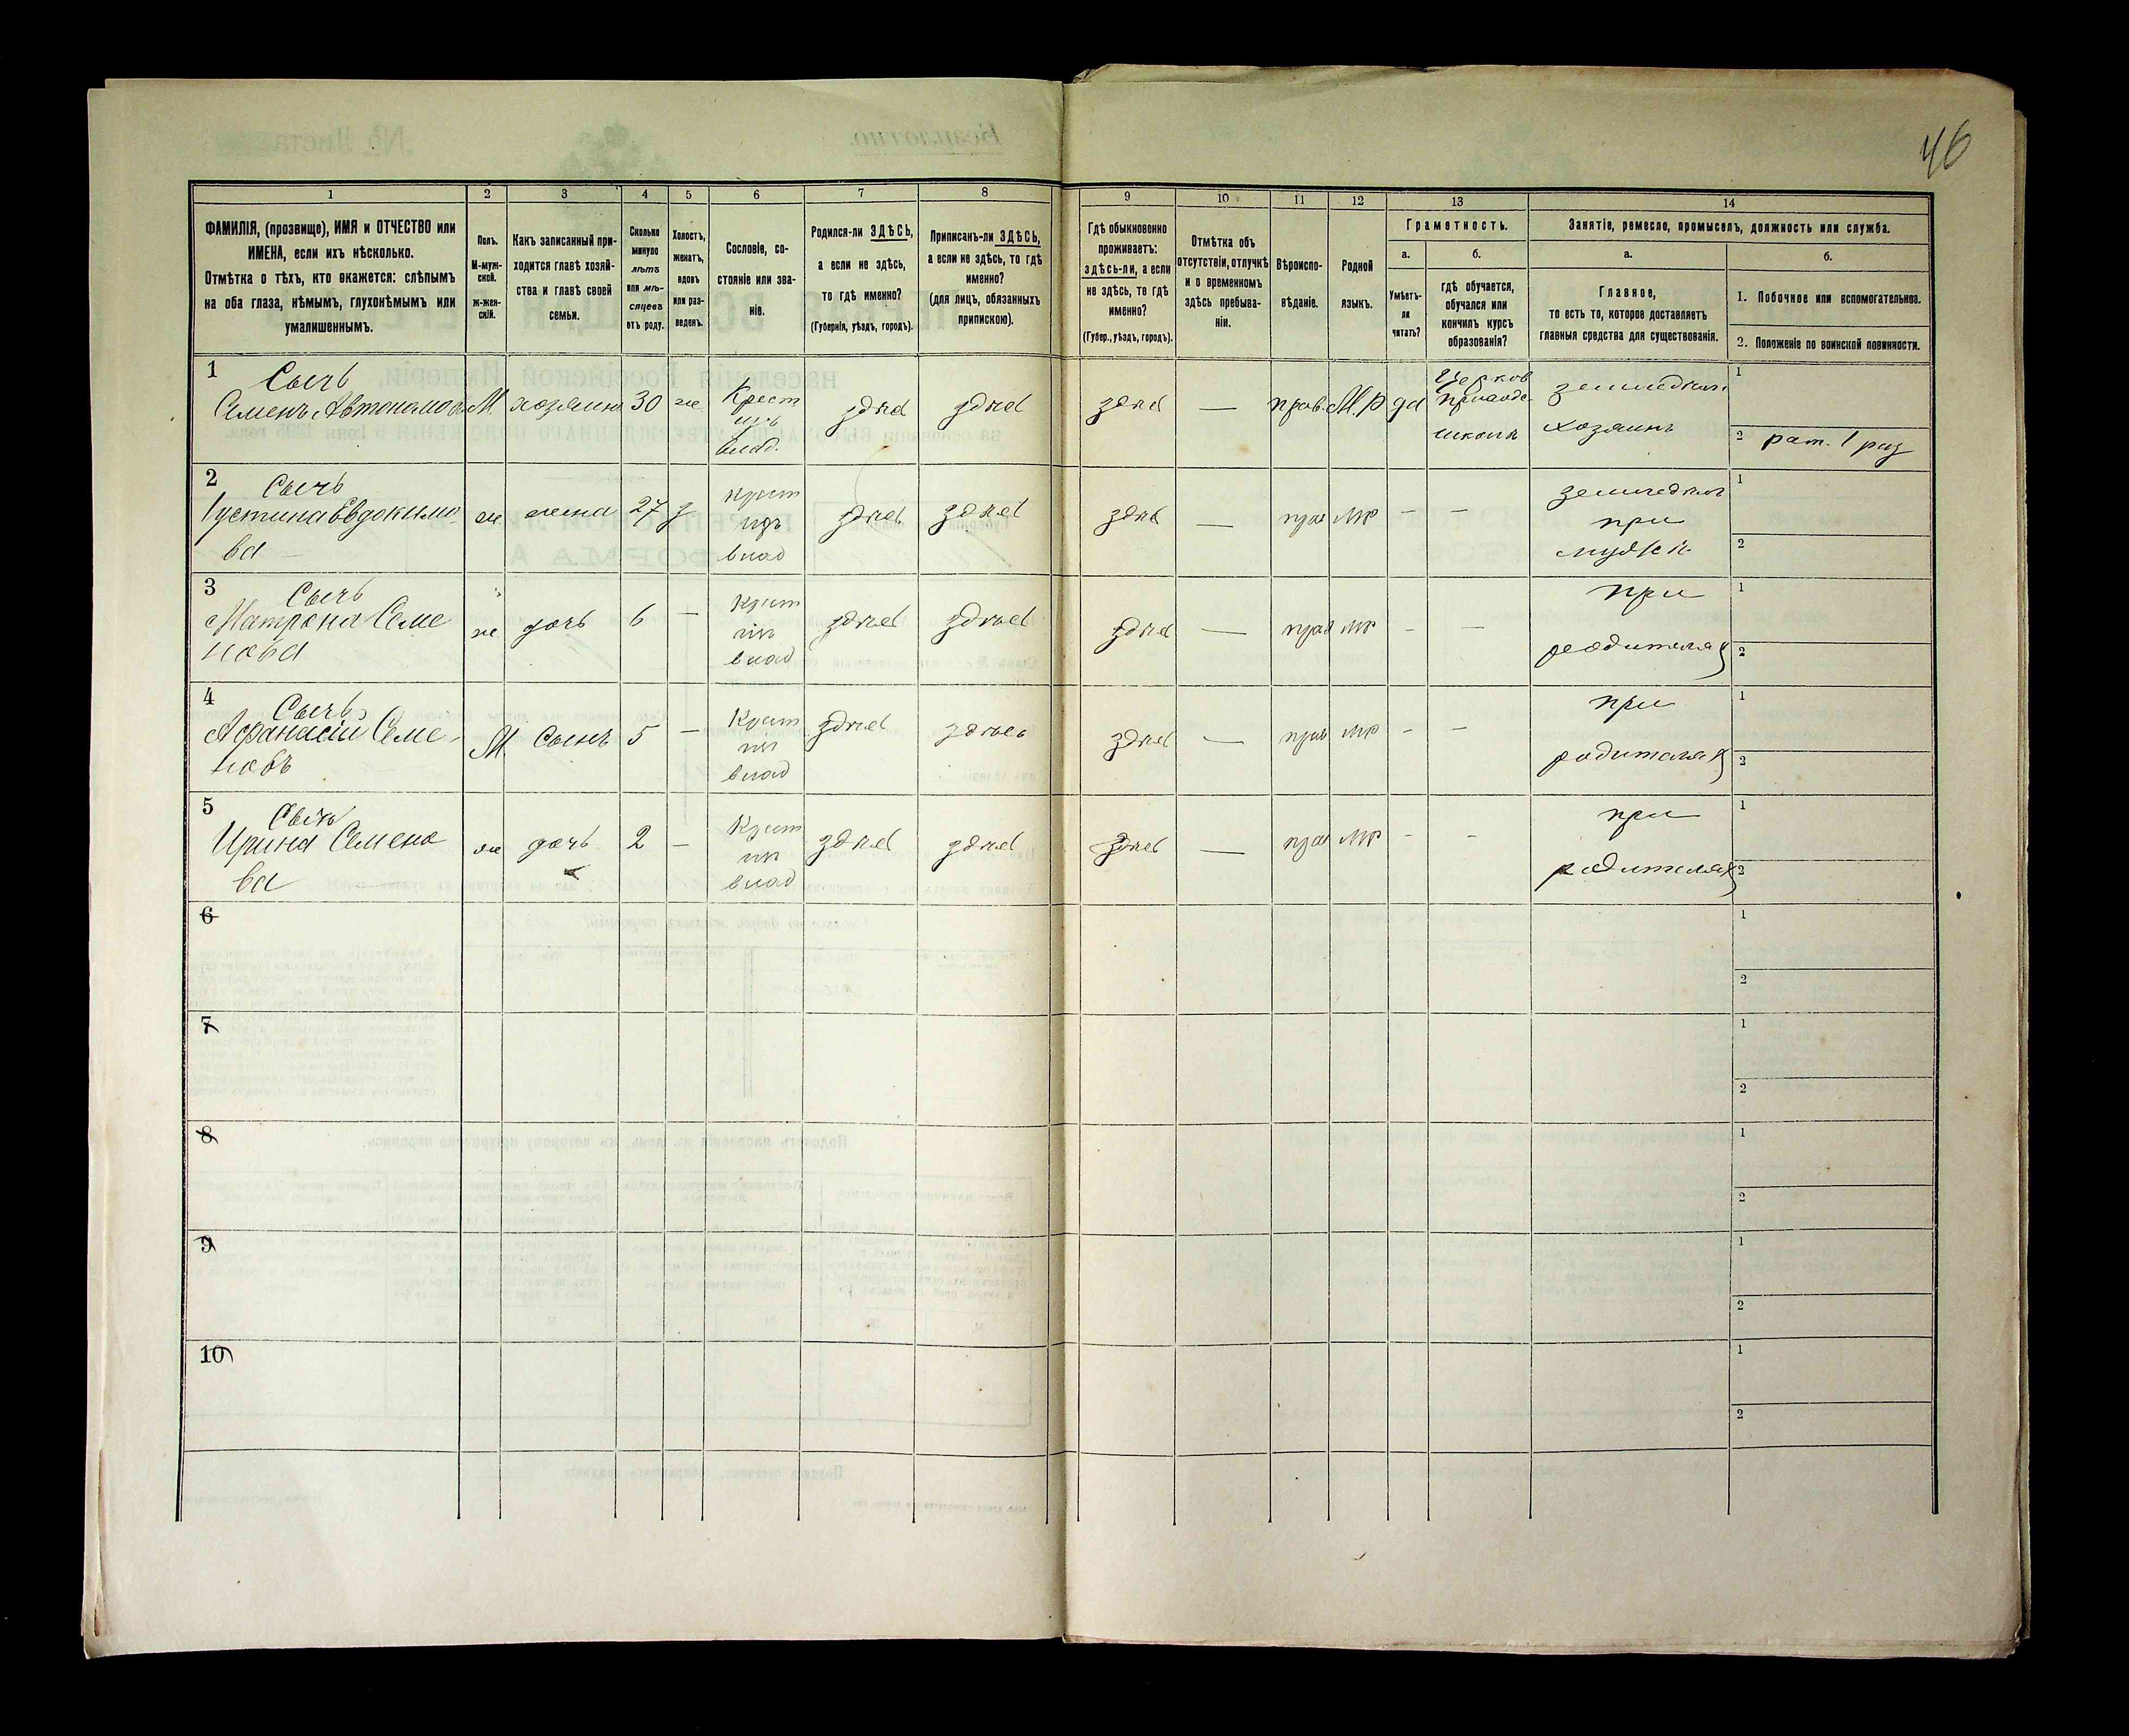 46
1 2 3 4 5 6 7 8 9 10 11 12 13 14
ФАМИЛІЯ, (прозвище), ИМЯ и ОТЧЕСТВО или
ИМЕНА, если ихъ нѣсколько.
Отмѣтка о тѣхъ, кто окажется: слѣпымъ
на оба глаза, нѣмымъ, глухонѣмымъ или
умалишеннымъ.
Полъ.
М-муж-
ской.
ж-жен-
скій.
Какъ записанный при-
ходится главѣ хозяй-
ства и главѣ своей
семьи.
Сколько
минуло
лѣтъ
или мѣ-
сяцевъ
отъ роду.
Холостъ,
женатъ,
вдовъ
или раз-
веденъ.
Сословіе, со-
стояніе или зва-
ніе.
Родился-ли ЗДѢСЬ,
а если не здѣсь,
то гдѣ именно?
(Губернія, уѣздъ, городъ).
Приписанъ-ли ЗДѢСЬ,
а если не здѣсь, то гдѣ
именно?
(для лицъ, обязанныхъ
припискою).
Гдѣ обыкновенно
проживаетъ:
здѣсь-ли, а если
не здѣсь, то гдѣ
именно?
(Губер., уѣздъ, городъ).
Отмѣтка объ
отсутствіи, отлучкѣ
и о временномъ
здѣсь пребыва-
ніи.
Вѣроиспо-
вѣданіе.
Родной
языкъ.
Грамотность.
а.
Умѣетъ-
ли
читать?
б.
гдѣ обучается,
обучался или
кончилъ курсъ
образованія?
Занятіе, ремесло, промыселъ, должность или служба.
а.
Главное,
то есть то, которое доставляетъ
главныя средства для существованія.
б.
1. Побочное или вспомогательное.
2. Положеніе по воинской повинности.
1 Сычъ
Семенъ Автономовъ М хозяинъ 30 же Крест здѣсь здѣсь здѣсь — прав. М.р да
изъ
влад.
Церков
приходс
школѣ
земледѣл.
хозяинъ
1
2 рат. 1 раз
2 Сычъ
Іустина Евдокимо-
ва — ж жена 27 з крест
изъ
влад здѣсь здѣсь здѣсь — прав мр — —
земледѣл
при
мужѣ
1
2
3 Сычъ
Матрона Семе
нова ж дочь 6 — крест
влад здѣсь здѣсь здѣсь — прав мр - —
при
родителях
1
2
4 Сычъ
Афанасій Семе-
новъ М Сынъ 5 — Крест
влад здѣсь здѣсь здѣсь — прав мр - -
при
родителях
1
2
5 Сычъ
Ирина Семено
ва ж дочь 2 — Крест
влад здѣсь здѣсь здѣсь — прав мр - -
при
родителях
1
2
6
1
2
7
1
2
8
1
2
9
1
2
10
1
2